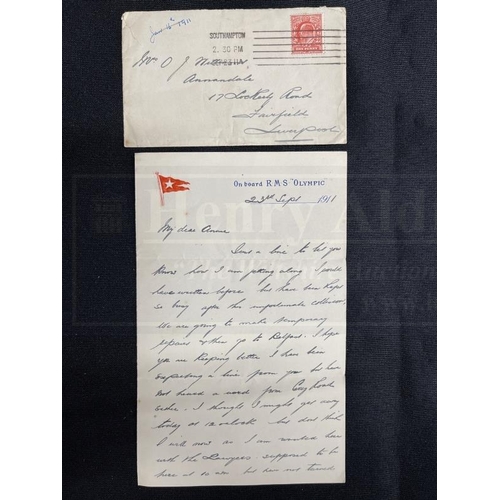 Sept 1911
SOUTHAMPTON
2.30 PM
Mrs O J
Annandale
17 Lockerby Road
Fairfield
Liverpool
On board R.M.S. "OLYMPIC"
23rd Sept 1911
My dear
Just a line to let you
know how I am getting along I would
have written before but have been kept
so busy after the unfortunate collision,
We are going to make temporary
repairs & then go to Belfast. I hope
you are keeping better I have been
expecting a line from you but have
not heard a word from Road
either. I thought I might get away
today at 12 o'clock but don't think
I will now as I am wanted here
with the Lawyers supposed to be
here at 10 am but have not turned
Henry Ald